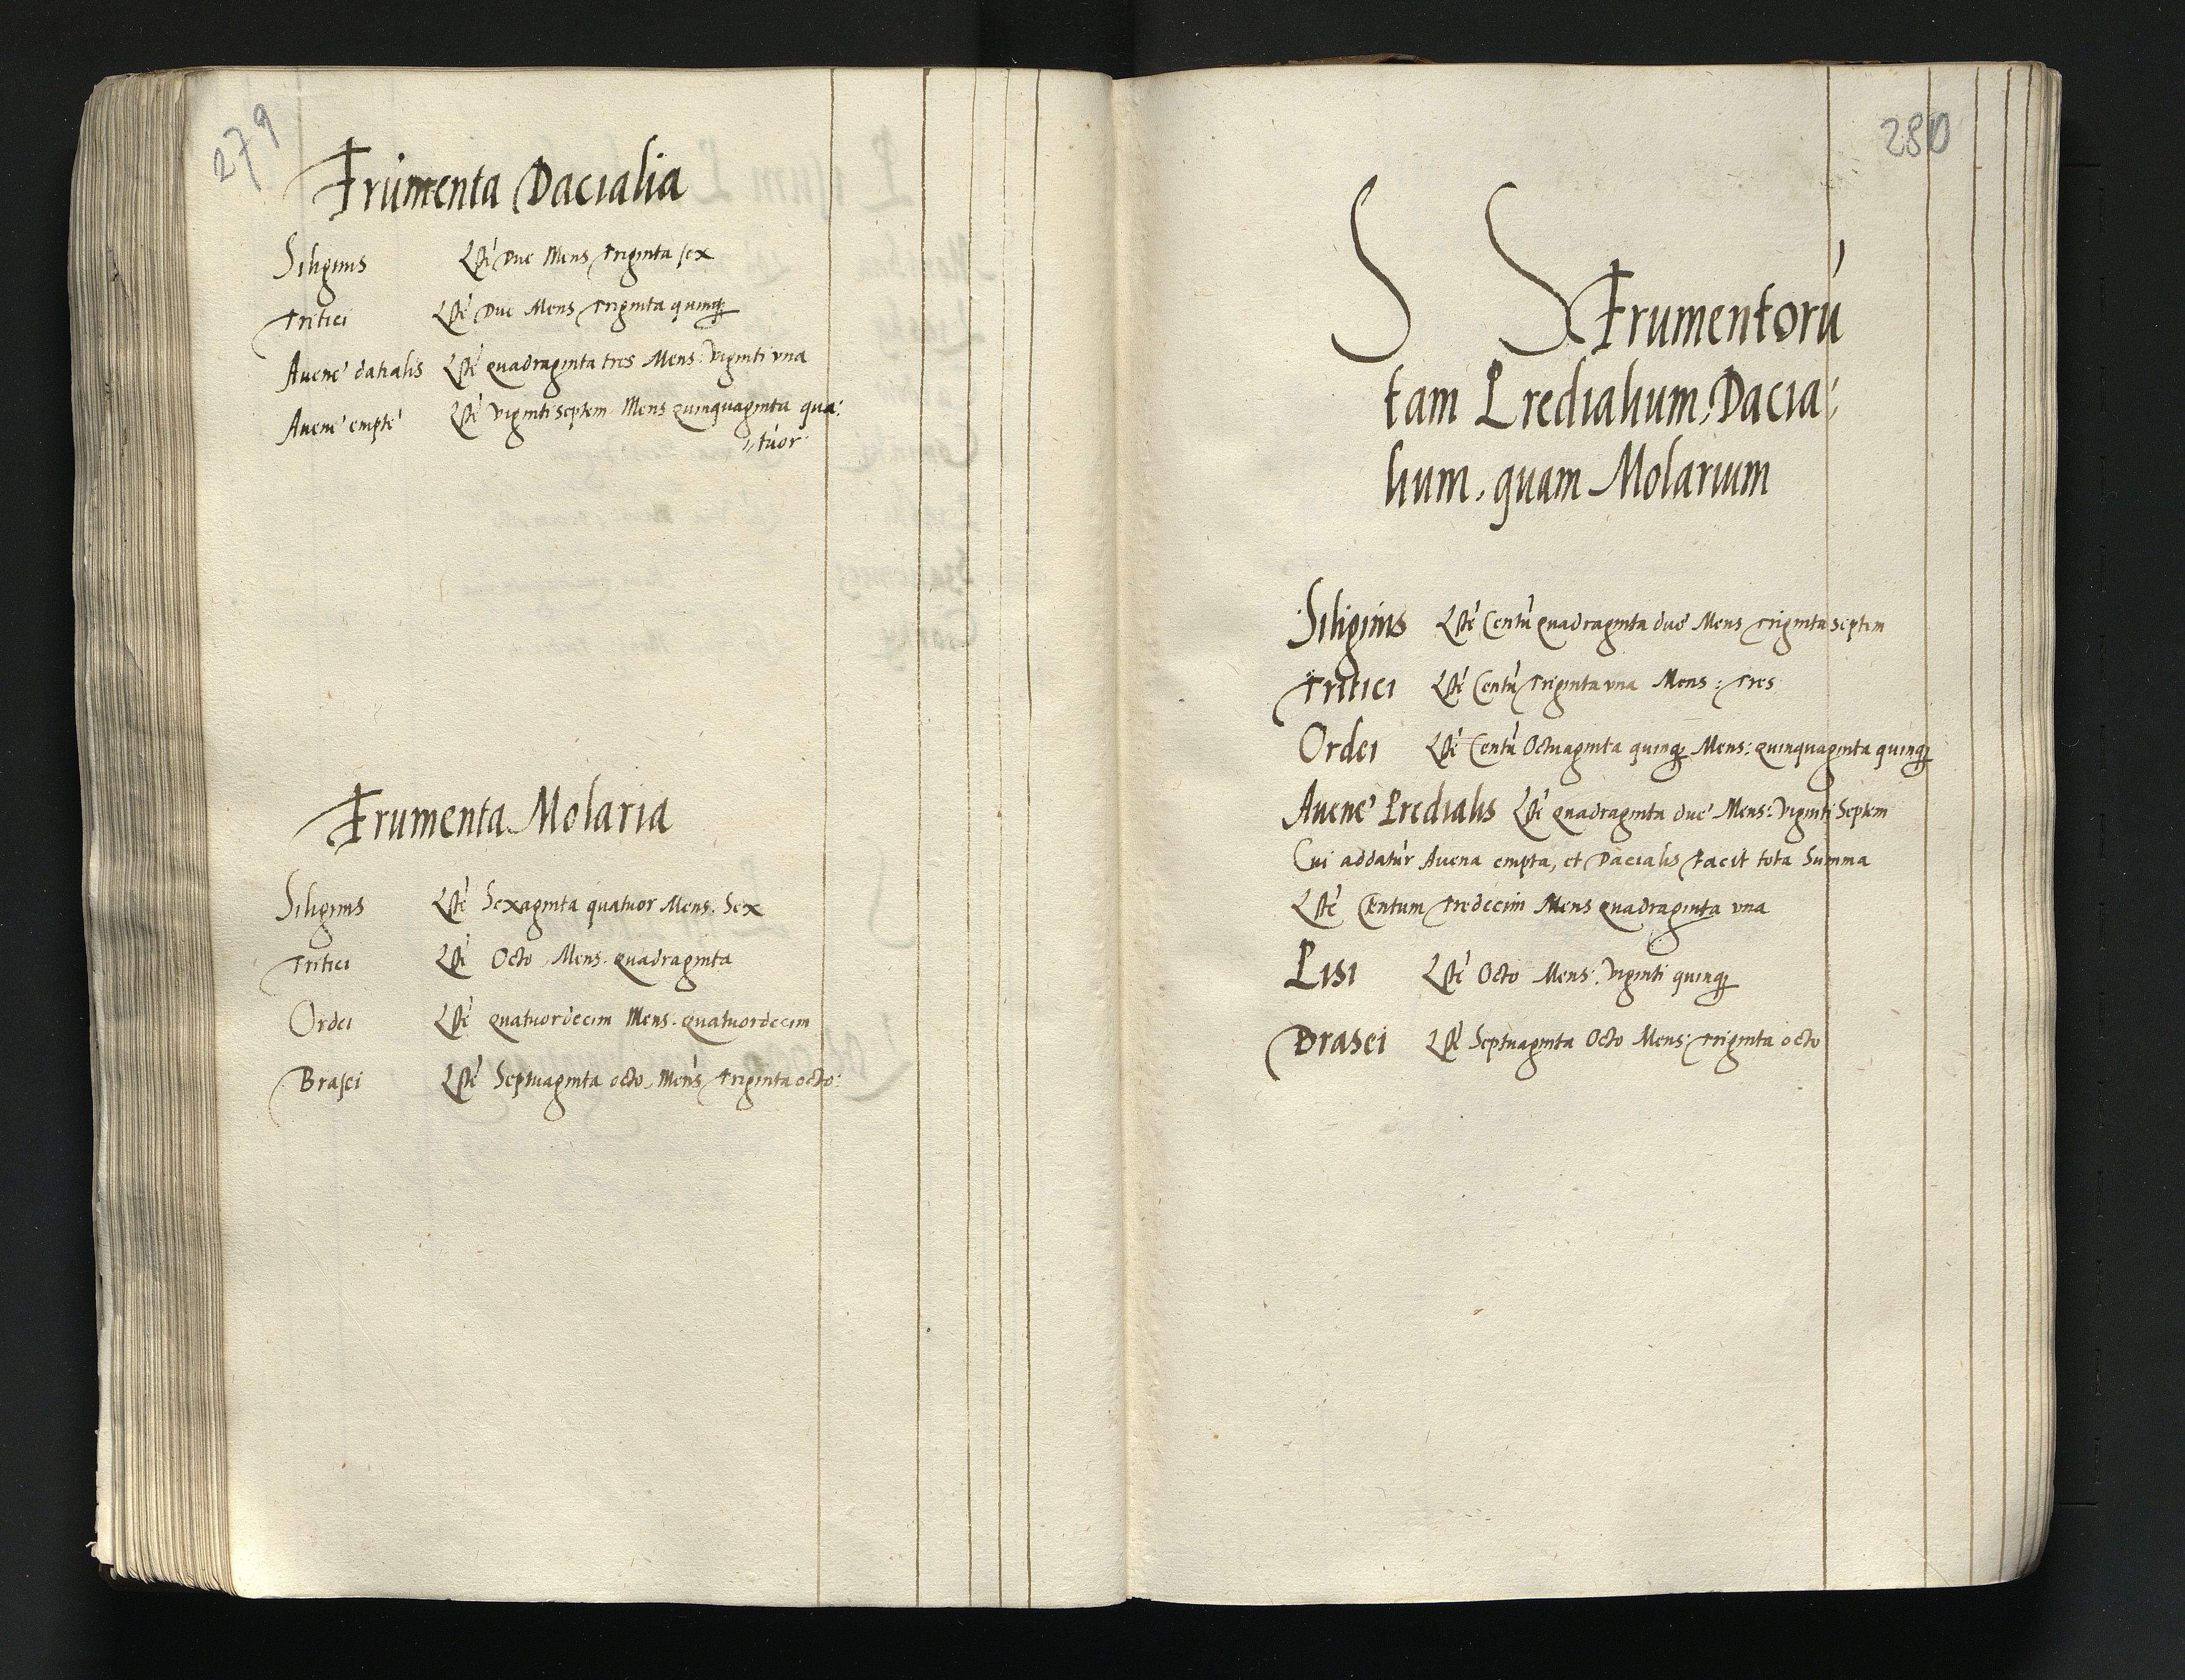 279
Frumenta Dacialia
Siliginis Lste Due Mens Triginta sex
Tritici Lste Due Mens Triginta quinq3
Auene datialis Lste quadraginta tres Mens: Viginti vna
Auene empte Lste Viginti septem Mens quinquaginta qua:
tuor
Frumenta Molaria
Siliginis Lste Sexaginta quatuor Mens. Sex
Tritici Lste Octo Mens. quadraginta
Ordei Lste quatuordecim Mens. quatuordecim
Brasei Lste Septuaginta octo, Mens Triginta octo:
280
S S Frumentorú
tam Predialium, Dacia:
lium, quam Molarium
Siliginis Lste Centú quadraginta due Mens Triginta septem
Tritici Lste Centú Triginta vna Mens: Tres
Ordei Lste Centú Octuaginta quinq3 Mens: quinquaginta quinq3
Auene Predialis Lste quadraginta due Mens: Viginti Septem
Cui addatur Auena empta, et Dacialis Facit tota Summa
Lste Centum Tredecim Mens quadraginta vna
Pisi Lste Octo Mens: Viginti quinq3
Brasei Lste Septuaginta Octo Mens: Triginta octo